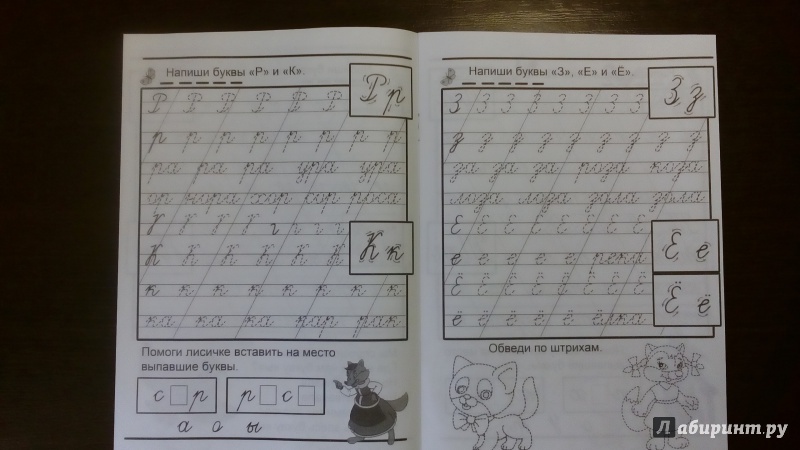 Напиши буквы «Р» и «К».
Р р
Р Р Р Р Р Р
р р р р р р р р
ра ра ра ура ура
ор нора хор сор роса
К К К К К К
К к
к к к к к к к к
ка ка ка пар рак
Помоги лисичке вставить на место
выпавшие буквы.
с р р с
а о ы
Напиши буквы «З», «Е» и «Ё».
З з
З З З З З З З З
з з з з з з з з з з
за за за роза коза
лоза лоза зола зола
Е Е Е Е Е Е Е Е
Е е
е е е е е реки
Ё Ё Ё Ё Ё Ё Ё Ё
Ё ё
ё ё ё ё ё ёлка
Обведи по штрихам.
Лабиринт.ру